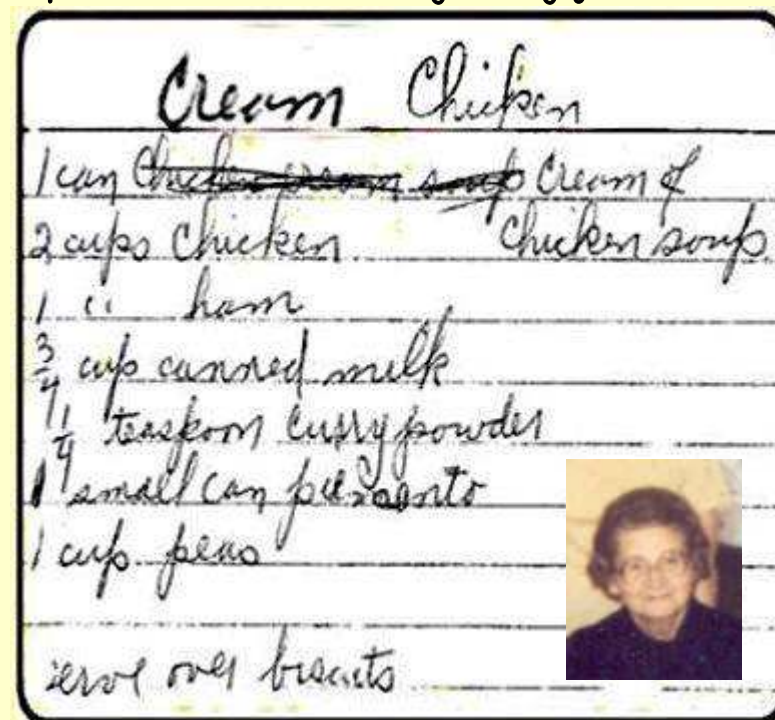 Cream Chicken
1 can Chicken cream soup Cream of
2 cups Chicken Chicken soup
1 " ham
3/4 cup canned milk
1/4 teaspoon curry powder
1 small can pimento
1 cup peas
serve over biscuits